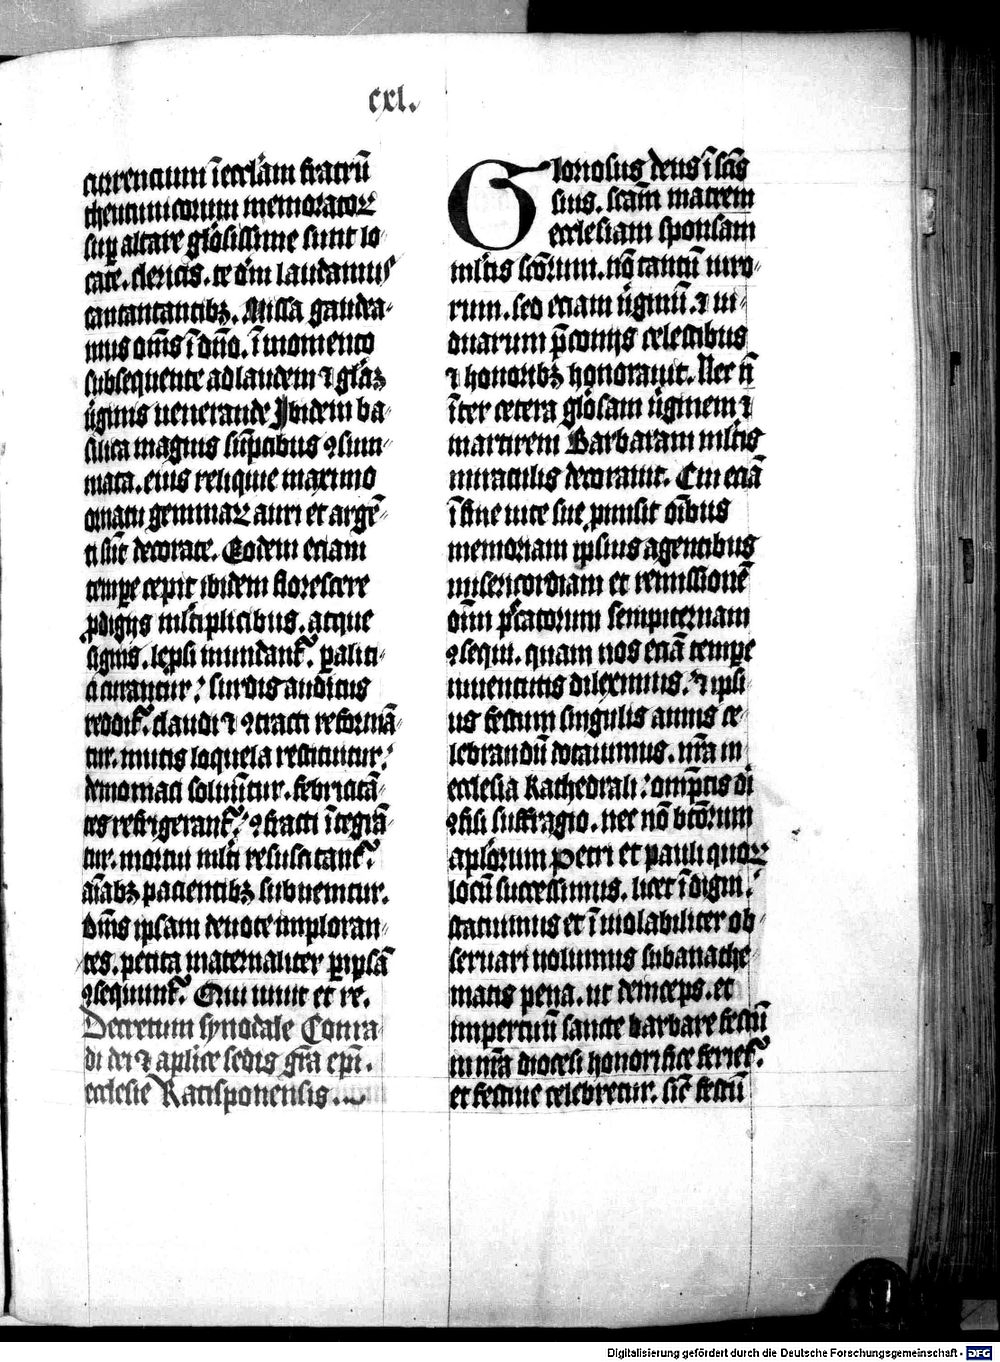 cxl.
currencium ī eccl'am fratrū
theutunicorum memoratoꝝ
suꝑ altare gl'osissime sunt lo-
cate. clericis. te dm̄ laudamus
cantantantibꝫ. Missa gaudea-
mus om̄s ī dn̄o. ī momento
subsequente ad laudem ⁊ gl'aꝫ
ūginis uenerande Ibidem ba-
silica magnis sūptibus ꝯsum-
mata. eius reliquie maximo
ornatu gemmaꝝ auri et argē-
ti sūt decorate. Eodem eciam
tempe cepit ibidem florescere
ꝓdigijs ml'tiplicibus. atque
signis. lepsi mundant᷑. paliti-
ci curantur: surdis auditus
reddit᷑. claudi ⁊ ꝯtracti reformā-
tur. mutis loquela restituitur:
demoniaci soluūtur. febricitā-
tes refrigerant᷑: ꝯfracti ītegrā-
tur. mortui ml'ti resuscitant᷑
aīabꝫ pacientibꝫ subuenitur.
Om̄s ipsam deuote imploran-
tes. petita maternaliter ꝑ ipsā
ꝯsequunt᷑. Qui uiuit et re.
Decretum synodale Conra-
di dei ⁊ aplice sedis gr̄a epī.
ecclesie Ratisponensis.
Gloriosus deus ī scīs
suis. scām matrem
ecclesiam sponsam
ml'tis scōrum. nō tantū uiro-
rum. sed eciam ūginū. ⁊ ui-
duarum p̄conijs celestibus
⁊ honoribꝫ honorauit. Nec nō
īter cetera gl'osam ūginem ⁊
martirem Barbaram ml'tis
miraculis decorauit. Cui eciā
ī fine uite sue ꝓmisit oībus
memoriam ipsius agentibus
misericordiam et remissionē
oīm pc̄catorum sempiternam
ꝯsequi. quam nos eciā tempe
iuuentutis dileximus: ⁊ ipsi-
us festum singulis annis ce-
lebrandū dotauimus. nr̄a in
ecclesia Kathedrali: omp̄tis di
ꝯfisi suffragio. nec nō btōrum
apl'orum Petri et pauli quoꝝ
locū successimus. licet īdigni:
statuimus et īuiolabiliter ob-
seruari uolumus sub anathe-
matis pena. ut deinceps. et
imperpetuū sancte barbare festū
in nr̄a diocesi honorifice feriet᷑:
et festiue celebretur. sic̄ festū
Digitalisierung gefördert durch die Deutsche Forschungsgemeinschaft - DFG